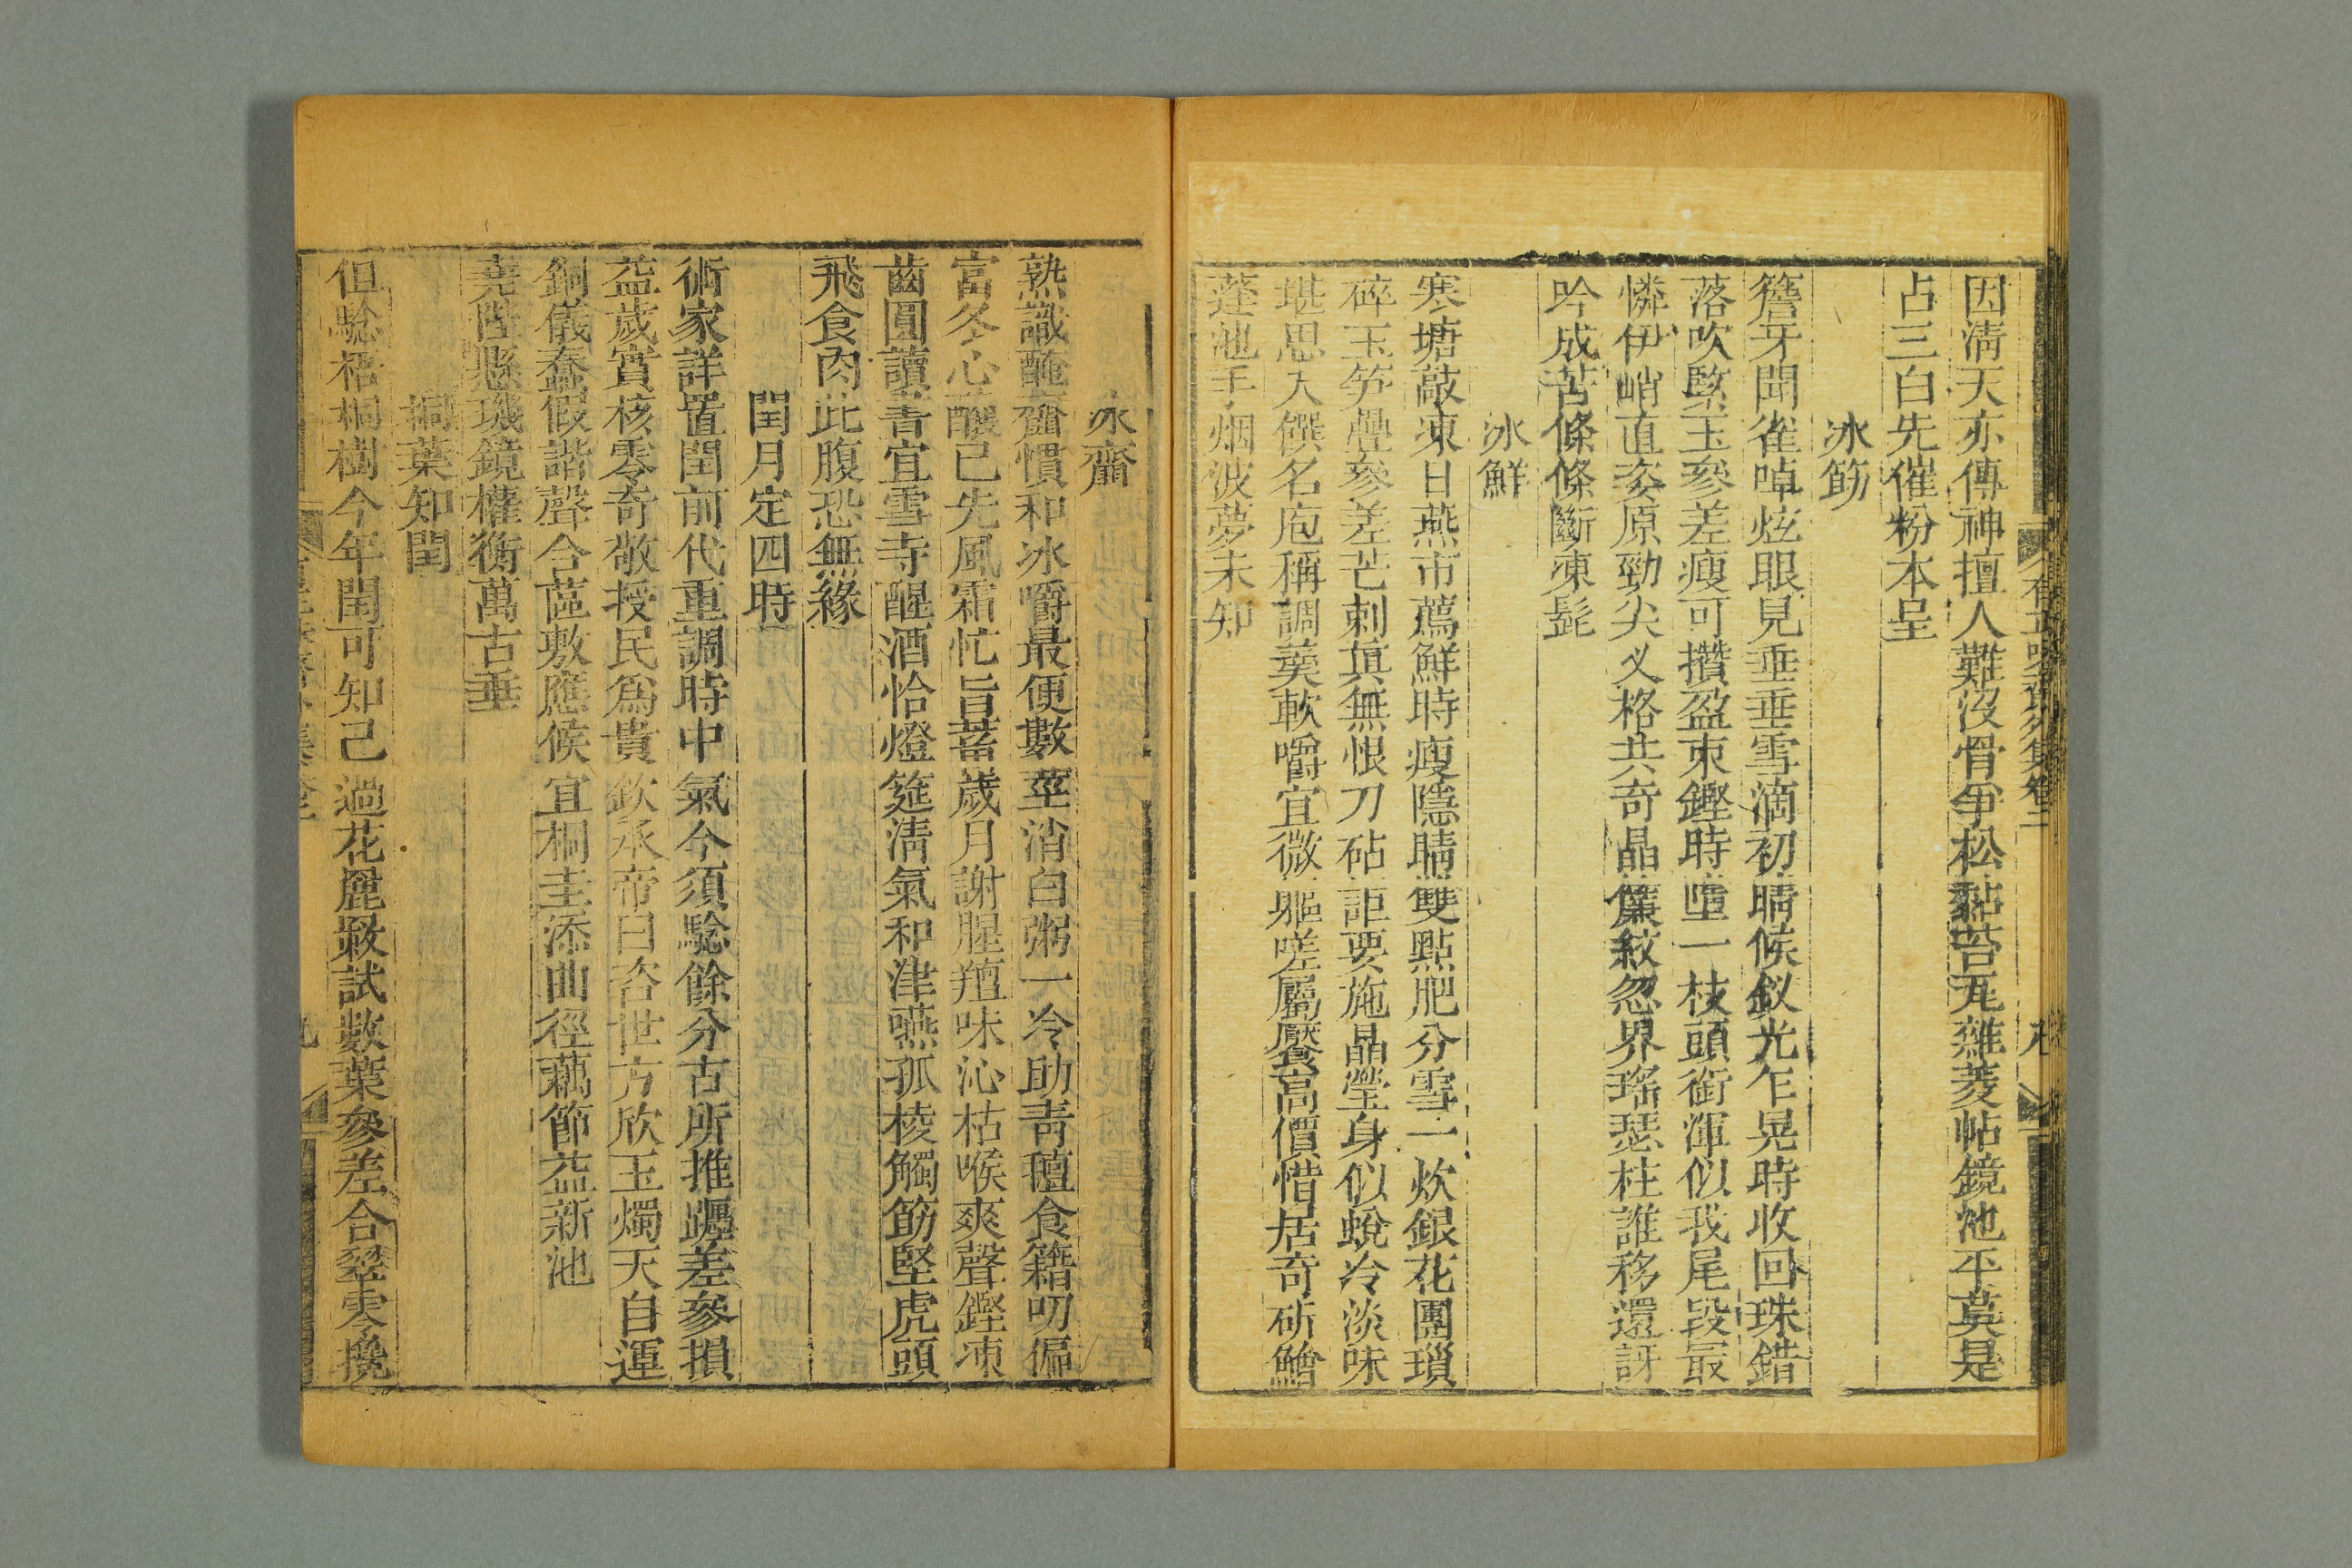 因淸天亦傳神擅人難沒骨爭松黏苔瓦雜菱帖鏡池平莫是
占三白先催粉本呈
冰筯
簷牙聞雀啅炫眼見垂垂雪滴初晴候釵光乍晃時收回珠錯
落吹墜玉參差瘦可攢盈束鏗時墮一枝頭銜渾似我尾段最
憐伊峭直姿原勁尖乂格共奇晶簾紋忽界瑤瑟柱誰移還訝
吟成苦條條斷凍髭
冰鮮
寒塘敲凍日燕市薦鮮時瘦隱腈雙點肥分雪一炊銀花團瑣
碎玉笋疊參差芒刺眞無恨刀砧詎要施晶瑩身似蛻冷淡味
堪思入饌名庖稱調羹軟嚼宜微軀嗟屬饜高價惜居奇斫鱠
蓬池手烟波夢未知
冰齏
熟識醃虀慣和冰嚼最便數莖消白粥一冷助靑氊食籍叨偏
富冬心釀已先風霜忙旨蓄歲月謝腥羶味沁枯喉爽聲鏗凍
齒圓讀書宜雪寺醒酒恰燈筵淸氣和津嚥孤棱觸筯堅虎頭
飛食肉此腹恐無緣
閏月定四時
術家詳置閏前代重調時中氣今須驗餘分古所推躔差參損
益歲實核零奇敬授民爲貴欽承帝曰咨世方欣玉燭天自運
銅儀蠢假諧聲合蓲敷應候宜桐圭添曲徑藕節益新池
堯陛懸璣鏡權衡萬古垂
桐葉知閏
但驗梧桐樹今年閏可知己過花麗毿試數葉參差合翠零攙